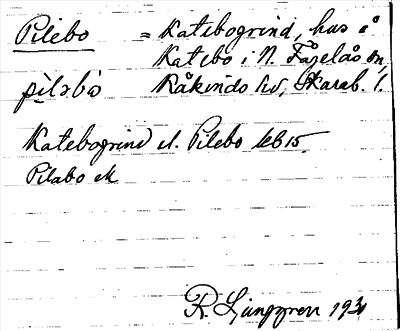 Pilebo = Katebogrind, hus å
Katebo i N. Fågelås sn
pìlabò Kåkinds hd, Skarab. l.
Katebogrind el. Pilebo leb 15.
Pilabo ek
R. Ljunggren 1931